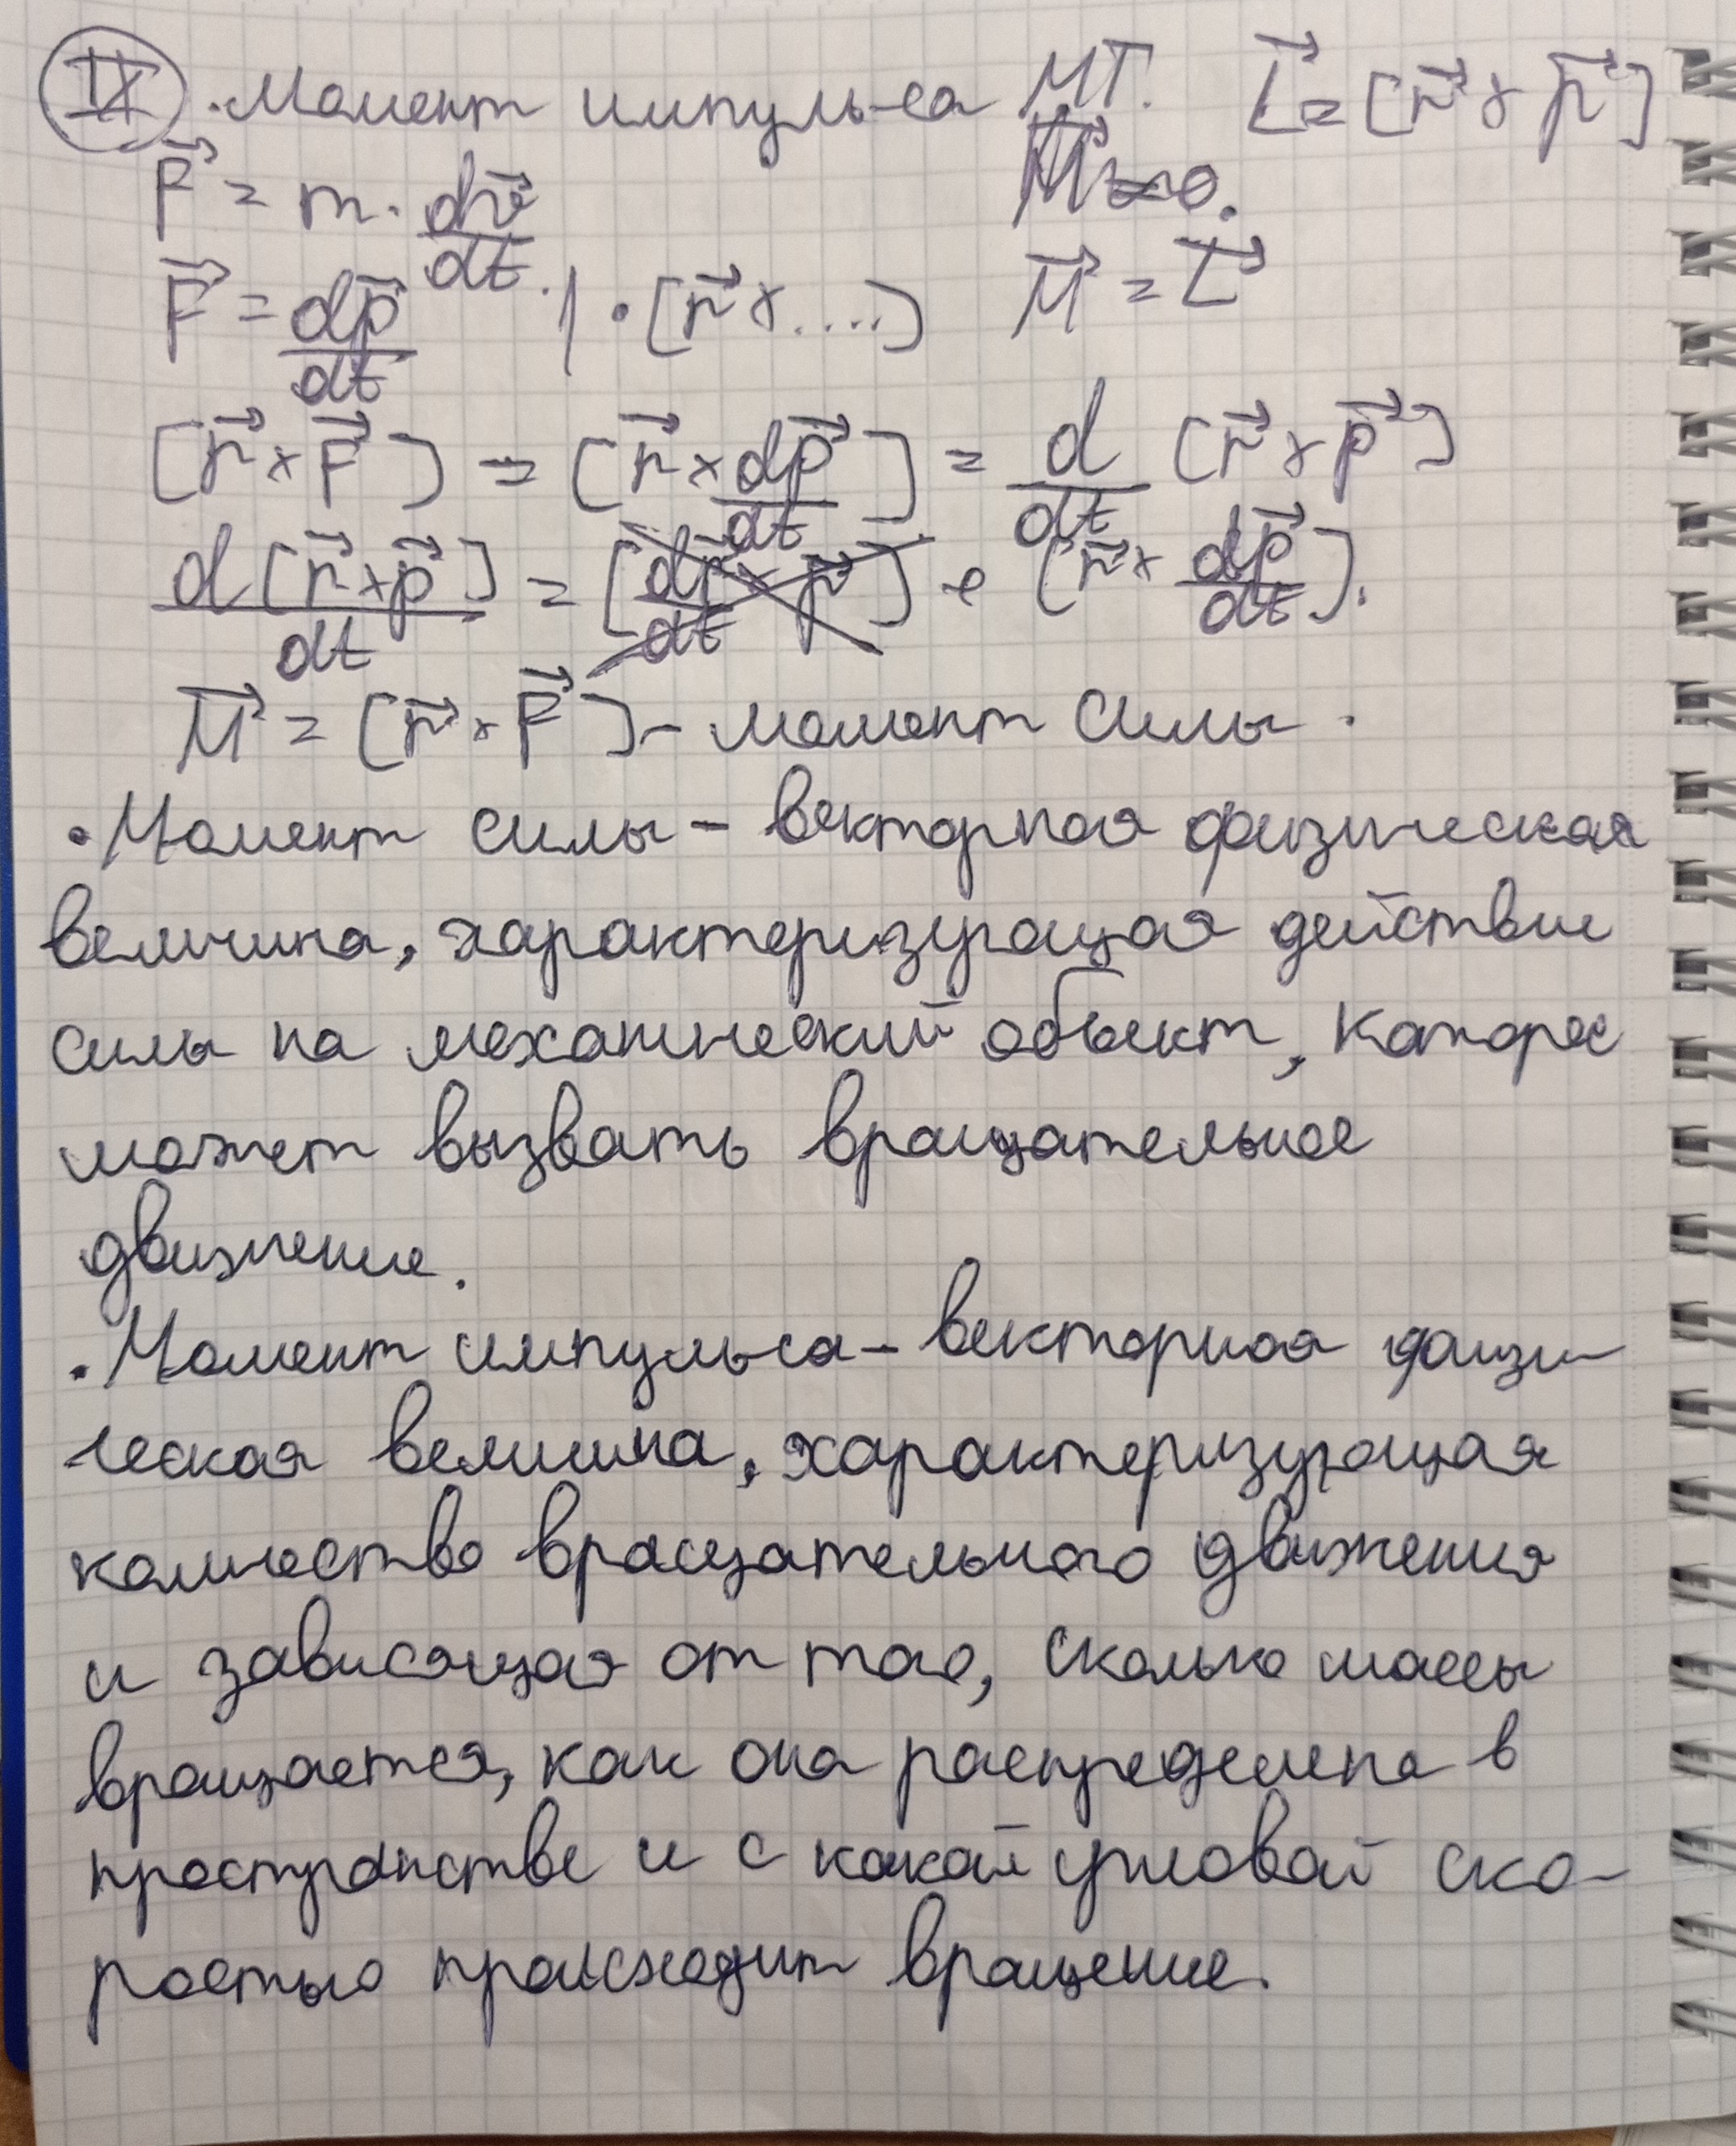 IX. Момент импульса МТ. L⃗ = [r⃗ × p⃗]
F⃗ = m · dv⃗/dt
F⃗ = dp⃗/dt. | · [r⃗ × ....] M⃗ = L⃗
[r⃗ × F⃗] = [r⃗ × dp⃗/dt] = d/dt [r⃗ × p⃗]
d[r⃗ × p⃗]/dt = [dr⃗/dt × p⃗] + [r⃗ × dp⃗/dt].
M⃗ = [r⃗ × F⃗] - момент силы.
• Момент силы - векторная физическая
величина, характеризующая действие
силы на механический объект, которое
может вызвать вращательное
движение.
• Момент импульса - векторная физи-
ческая величина, характеризующая
количество вращательного движения
и зависящая от того, сколько массы
вращается, как она распределена в
пространстве и с какой угловой ско-
ростью происходит вращение.